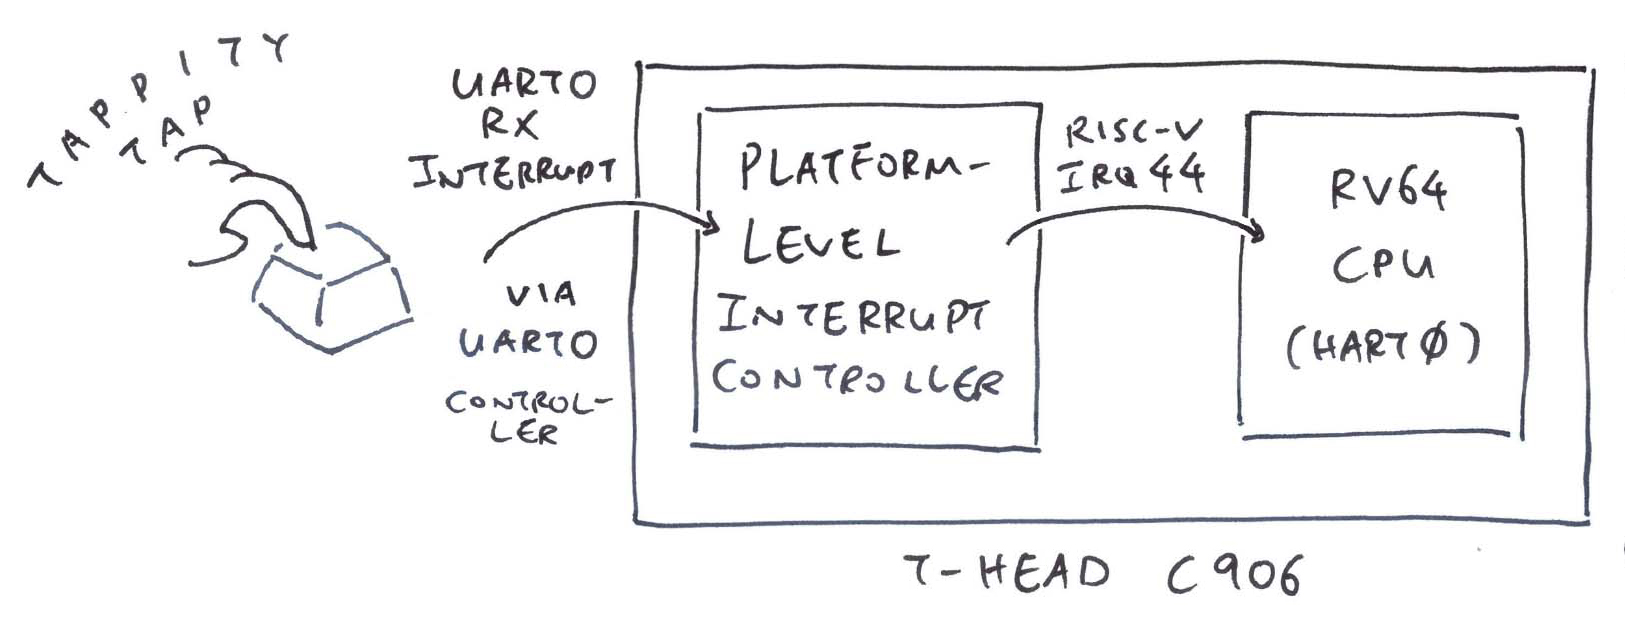 TAPPITY
TAP
UART0
RX
INTERRUPT
VIA
UART0
CONTROL-
LER
PLATFORM-
LEVEL
INTERRUPT
CONTROLLER
RISC-V
IRQ 44
RV64
CPU
(HART0)
T-HEAD C906